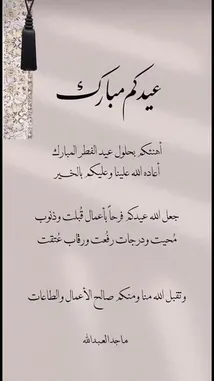 عيدكم مبارك
أهنئكم بحلول عيد الفطر المبارك
أعاده الله علينا وعليكم بالخير
جعل الله عيدكم فرحاً بأعمال قُبلت وذنوب
مُحيت ودرجات رفُعت ورقاب عُتقت
وتقبل الله منا ومنكم صالح الأعمال والطاعات
ماجد العبدالله